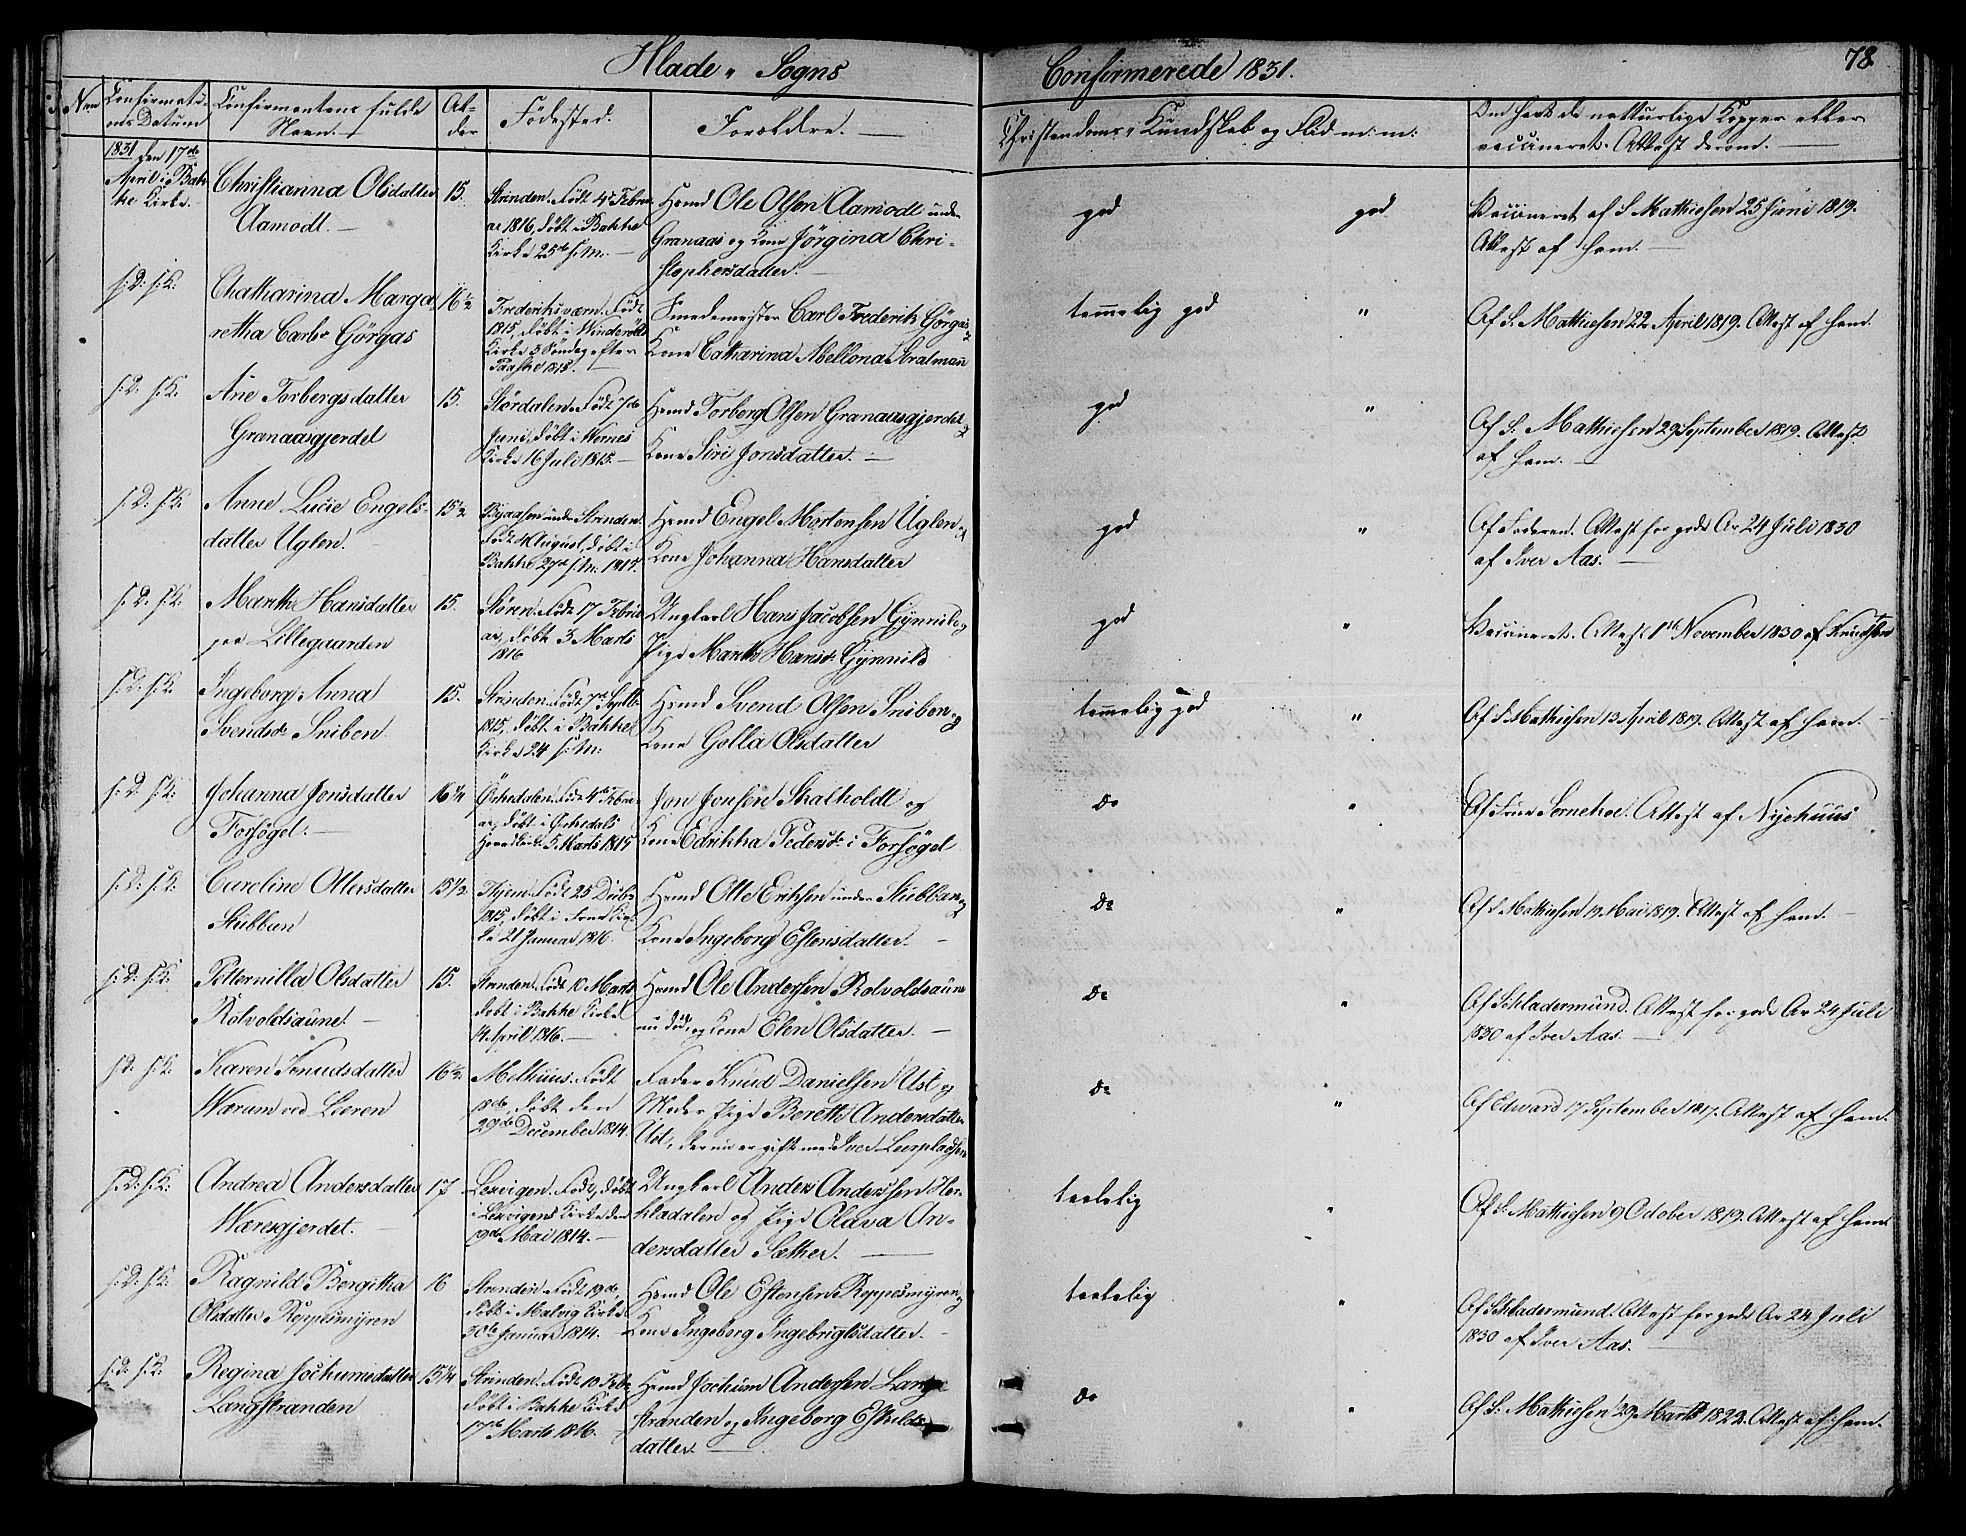 Hlade Sogns
Confirmerede 1831.
78
Nro
Confirmati-
ons Datum
Confirmantens fulde
Navn.
Al-
der
Födested.
Forældre.
Christendoms Kundskab og Flid m: m:
Om havt de naturlige Kopper eller
vaccineret. Attest derom.
1831 den 17de
April i Bak-
ke Kirke.
Christianna Olsdatter
Aamodt.
15.
Strinden. Födt 4de Febru-
ar 1816, döbt i Bakke
Kirke 25de s: M.
Hmd Ole Olsen Aamodt under
Granaas og Kone Jörgina Chri-
stophersdatter.
god
god
Vaccineret af S. Mathiesen 25 Juni 1819.
Attest af ham.
s: D: s: K:
Chatharina Marga-
retha Carls Görgas
16 1/2
Frederiksværn. Födt
1815, döbt i
Kirke 3 Söndag efter
Paaske 1815.
Smedemester Carl Frederik Görgas
Kone Catharina Abellona Stratman
temmelig god
"
Af S. Mathiesen 22 April 1819. Attest af ham.
s: D: s: K:
Ane Torbergsdatter
Granaasgjerdet
15.
Stördalen. Födt 7de
Juni, döbt i Wernes
Kirke 16 Juli 1815.
Hmd Torberg Olsen Granaasgjerdet
Kone Siri Jonsdatter.
god
"
Af S: Mathiesen 29 September 1819. Attest
af ham.
s: D: s: K:
Anne Lucie Engels-
datter Uglen.
15 1/2
Byaasen under Strinden.
Födt August, döbt i
Bakke 27de s: M: 1815.
Hmd Engel Mortensen Uglen og
Kone Johanna Hansdatter
god
"
Af Faderen. Attest for gode Ar 24 Juli 1830
af Iver Aas.
s: D: s: K:
Marith Hansdatter
paa Lillegaarden
15.
Stören. Födt 17 Febru-
ar, döbt 3 Marts
1816
Ungkarl Hans Jacobsen Gynnild og
Pige Marith Hansdr Gynnild
god
"
Vaccineret. Attest 1ste November 1830 af Knudsen
s: D: s: K:
Ingeborg Anna
Svendsdr Sniben.
15.
Strinden. Födt 7de Septbr
1815, döbt i Bakke
Kirke 24 s: M:
Hmd Svend Olsen Sniben og
Kone Golla Olsdatter
temmelig god
"
Af S. Mathiesen 13 April 1819. Attest af ham.
s: D: s: K:
Johanna Jonsdatter
Forsöget.
16 1/4
Örkedalen. Födt 4de Febru-
ar, döbt i Örkedals
Hovedkirke 5 Marts 1815
Jon Jonsen Skatholdt og
Kone Edrikka Pedersdr i Forsöget
do
"
Af Frue Sernehoe. Attest af Nijehuus
s: D: s: K:
Caroline Ottersdatter
Stubban
15 1/2
Födt 25 Decbr
1815, döbt i Kir-
ke 21 Januar 1816.
Hmd Otte Eriksen under Stubban og
Kone Ingeborg Estensdatter.
do
"
Af S Mathiesen 19 Mai 1819. Attest af ham.
s: D: s: K:
Petternilla Olsdatter
Rolvoldsaune.
15.
Strinden. Födt 10 Marts
döbt i Bakke Kirke
14 April 1816.
Hmd Ole Andersen Rolvoldsaune
nu död, og Kone Elen Olsdatter.
do
"
Af Schladermund. Attest for gode Ar 24 Juli
1830 af Iver Aas.
s: D: s: K:
Karen Knudsdatter
Wærum ved Leeren
16 1/2
Melhuus. Födt
18de, döbt den
29de December 1814.
Fader Knud Danielsen Ust og
Moder Pige Bereth Andersdatter
Ust, der nu er gift med Iver Leerpladsen
do
"
Af Edward 17 September 1817. Attest af ham.
s: D: s: K:
Andrea Andersdatter
Wæresgjerdet.
17
Lexvigen. Födt, döbt
i Lexvigens Kirke den
19de Mai 1814.
Ungkarl Anders Anderssen Hor-
kladalen og Pige Olava An-
dersdatter Sæther.
taalelig
"
Af S. Mathiesen 9 October 1819. Attest af ham
s: D: s: K:
Ragnild Bergitha
Olsdatter Roppesmyren
16
Strinden. Födt 19de,
döbt i Malvig Kirke
30de Januar 1814.
Hmd Ole Estensen Roppesmyren og
Kone Ingeborg Ingebrigtsdatter.
taalelig
"
Af Schladermund. Attest for gode Ar 24 Juli
1830 af Iver Aas.
s: D: s: K:
Regina Jochumsdatter
Langstranden
15 1/4
Strinden. Födt 10 Febr
döbt i Bakke Kirke
17de Marts 1816.
Hmd Jochum Andersen Lang-
stranden og Ingeborg Eskilds-
datter.
do
"
Af S: Mathiesen 29 Marts 1822. Attest af ham.